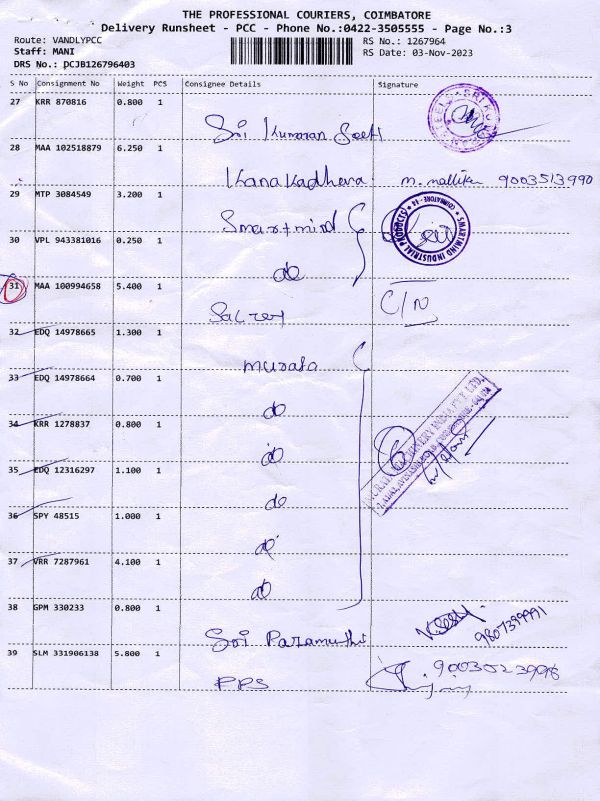 THE PROFESSIONAL COURIERS, COIMBATORE
Delivery Runsheet - PCC - Phone No.:0422-3505555 - Page No.:3
Route: VANDLYPCC
RS No.: 1267964
Staff: MANI
RS Date: 03-Nov-2023
DRS No.: DCJB126796403
S No Consignment No Weight PCS Consignee Details Signature
27 KRR 870816 0.800 1
Sri Kumaran Steels
28 MAA 102518879 6.250 1
Kanakadhara m. mallika 9003513990
29 MTP 3084549 3.200 1
Smartmind
SMARTMIND INDUSTRIAL PRODUCTS
COIMBATORE
30 VPL 943381016 0.250 1
do
31 MAA 100994658 5.400 1
C/N
32 EDQ 14978665 1.300 1
murata
33 EDQ 14978664 0.700 1
do
34 KRR 1278837 0.800 1
do
35 EDQ 12316297 1.100 1
do
36 SPY 48515 1.000 1
do
37 VRR 7287961 4.100 1
do
38 GPM 330233 0.800 1
Sri Paramuthu
39 SLM 331906138 5.800 1
PPS 9003523998